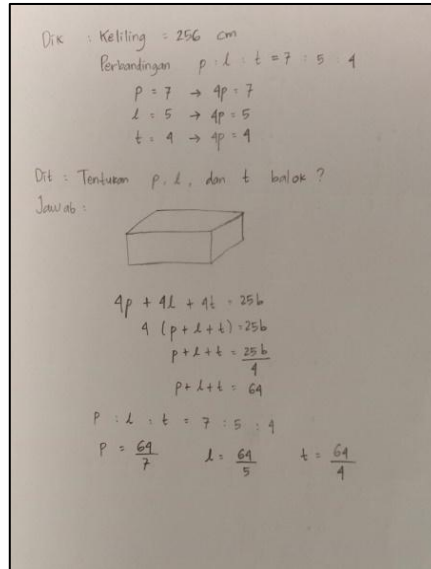 Dik : Keliling = 256 cm
Perbandingan p : l : t = 7 : 5 : 4
p = 7 → 4p = 7
l = 5 → 4p = 5
t = 4 → 4p = 4
Dit : Tentukan p, l, dan t balok ?
Jawab :
4p + 4l + 4t = 256
4 (p + l + t) = 256
p + l + t = 256/4
p + l + t = 64
P : l : t = 7 : 5 : 4
P = 64/7 l = 64/5 t = 64/4